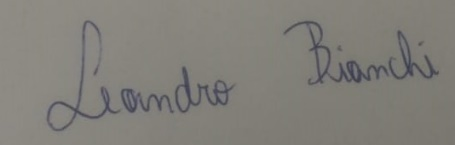 Leandro Bianchi